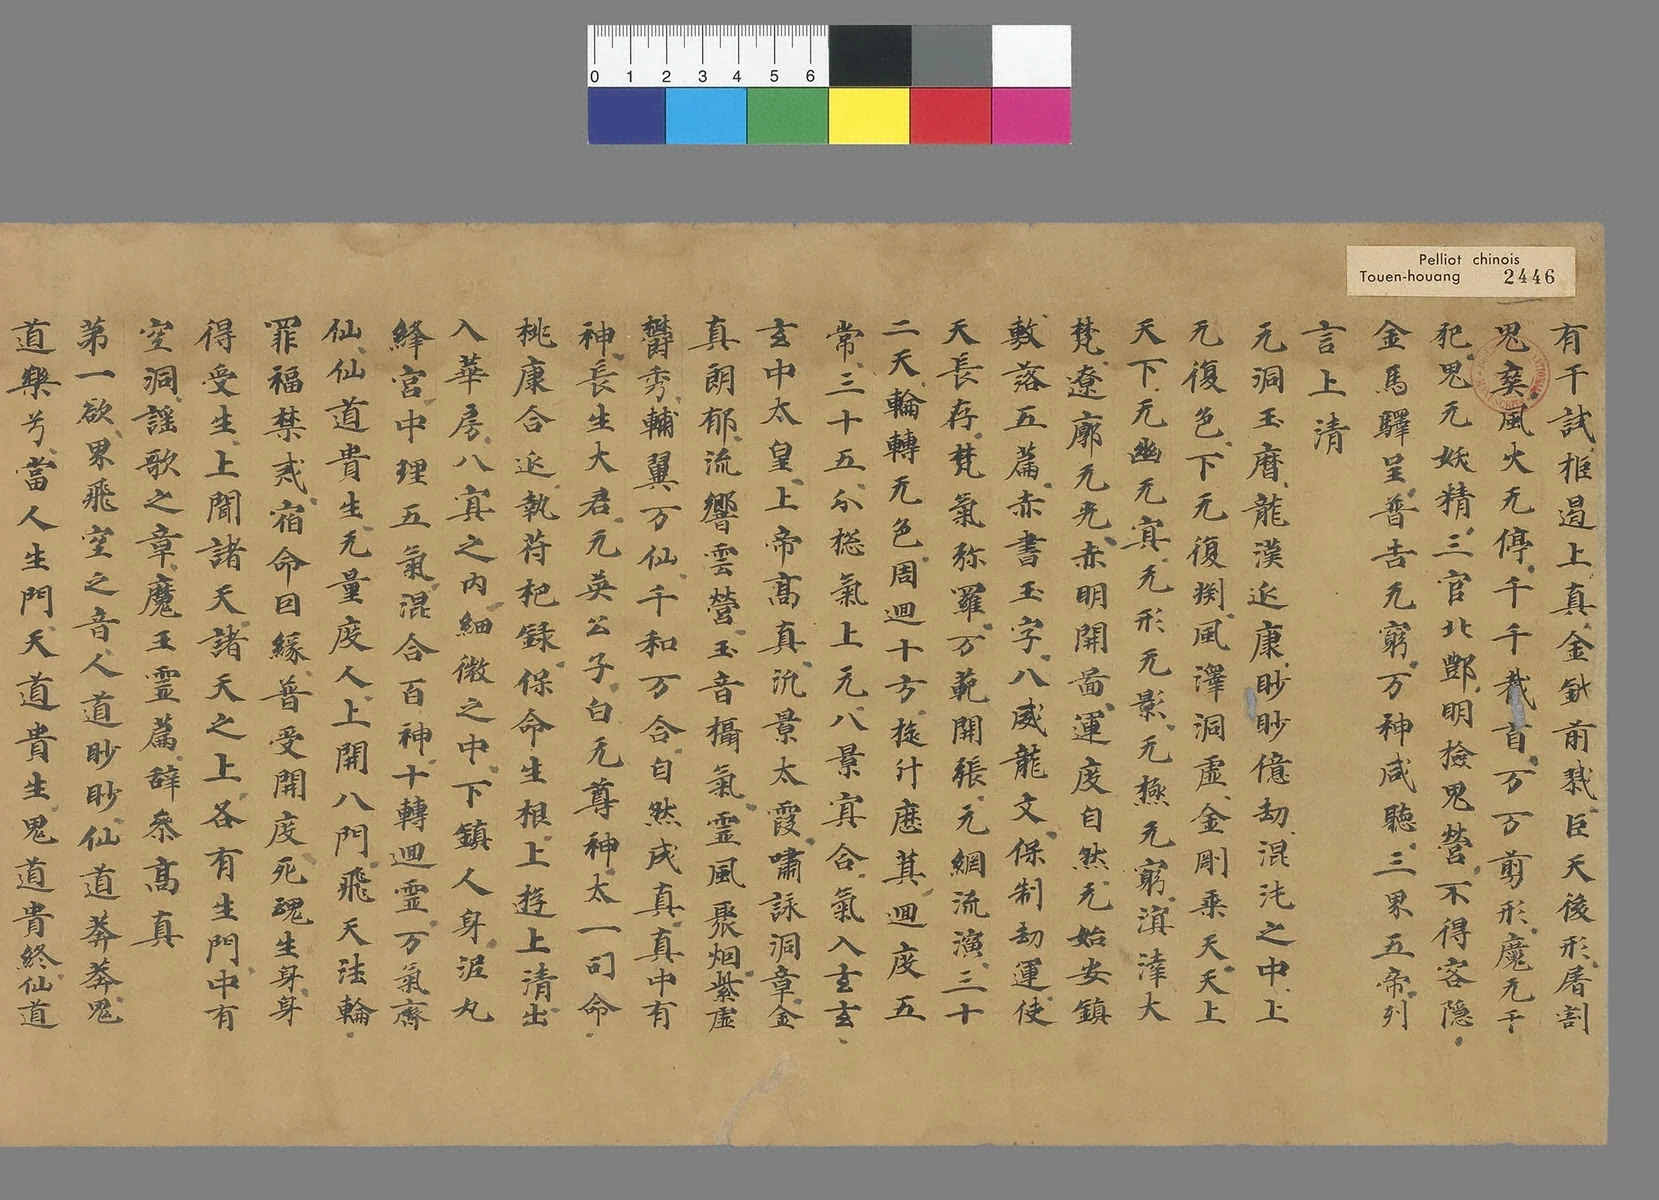 Pelliot chinois
Touen-houang 2446
0 1 2 3 4 5 6
有干試拒遏上真金鉞前戮巨天後形屠割
鬼爽風火无停千千截首万万剪形魔无干
犯鬼无妖精三官北酆明撿鬼營不得容隱
金馬驛呈普告无窮万神咸聽三界五帝列
言上清
元洞玉曆龍漢延康眇眇億劫混沌之中上
无復色下无復渕風澤洞虛金剛乘天天上
天下无幽无冥无形无影无極无窮溟涬大
梵遼廓无光赤明開啚運度自然元始安鎮
敷落五篇赤書玉字八威龍文保制劫運使
天長存梵氣弥羅万範開張元綱流演三十
二天輪轉无色周迴十方旋斗歷萁迴度五
常三十五分揔氣上元八景冥合氣入玄玄
玄中太皇上帝高真汎景太霞嘯詠洞章金
真朗郁流響雲營玉音攝氣靈風聚烟紫虛
欝秀輔翼万仙千和万合自然成真真中有
神長生大君无英公子白元尊神太一司命
桃康合延執符把録保命生根上遊上清出
入華房八冥之內細微之中下鎮人身泥丸
絳宮中理五氣混合百神十轉迴靈万氣齊
仙仙道貴生无量度人上開八門飛天法輪
罪福禁戒宿命因緣普受開度死魂生身身
得受生上聞諸天諸天之上各有生門中有
空洞謠歌之章魔王靈篇辞參高真
第一欲界飛空之音人道眇眇仙道莽莽鬼
道樂兮當人生門天道貴生鬼道貴終仙道